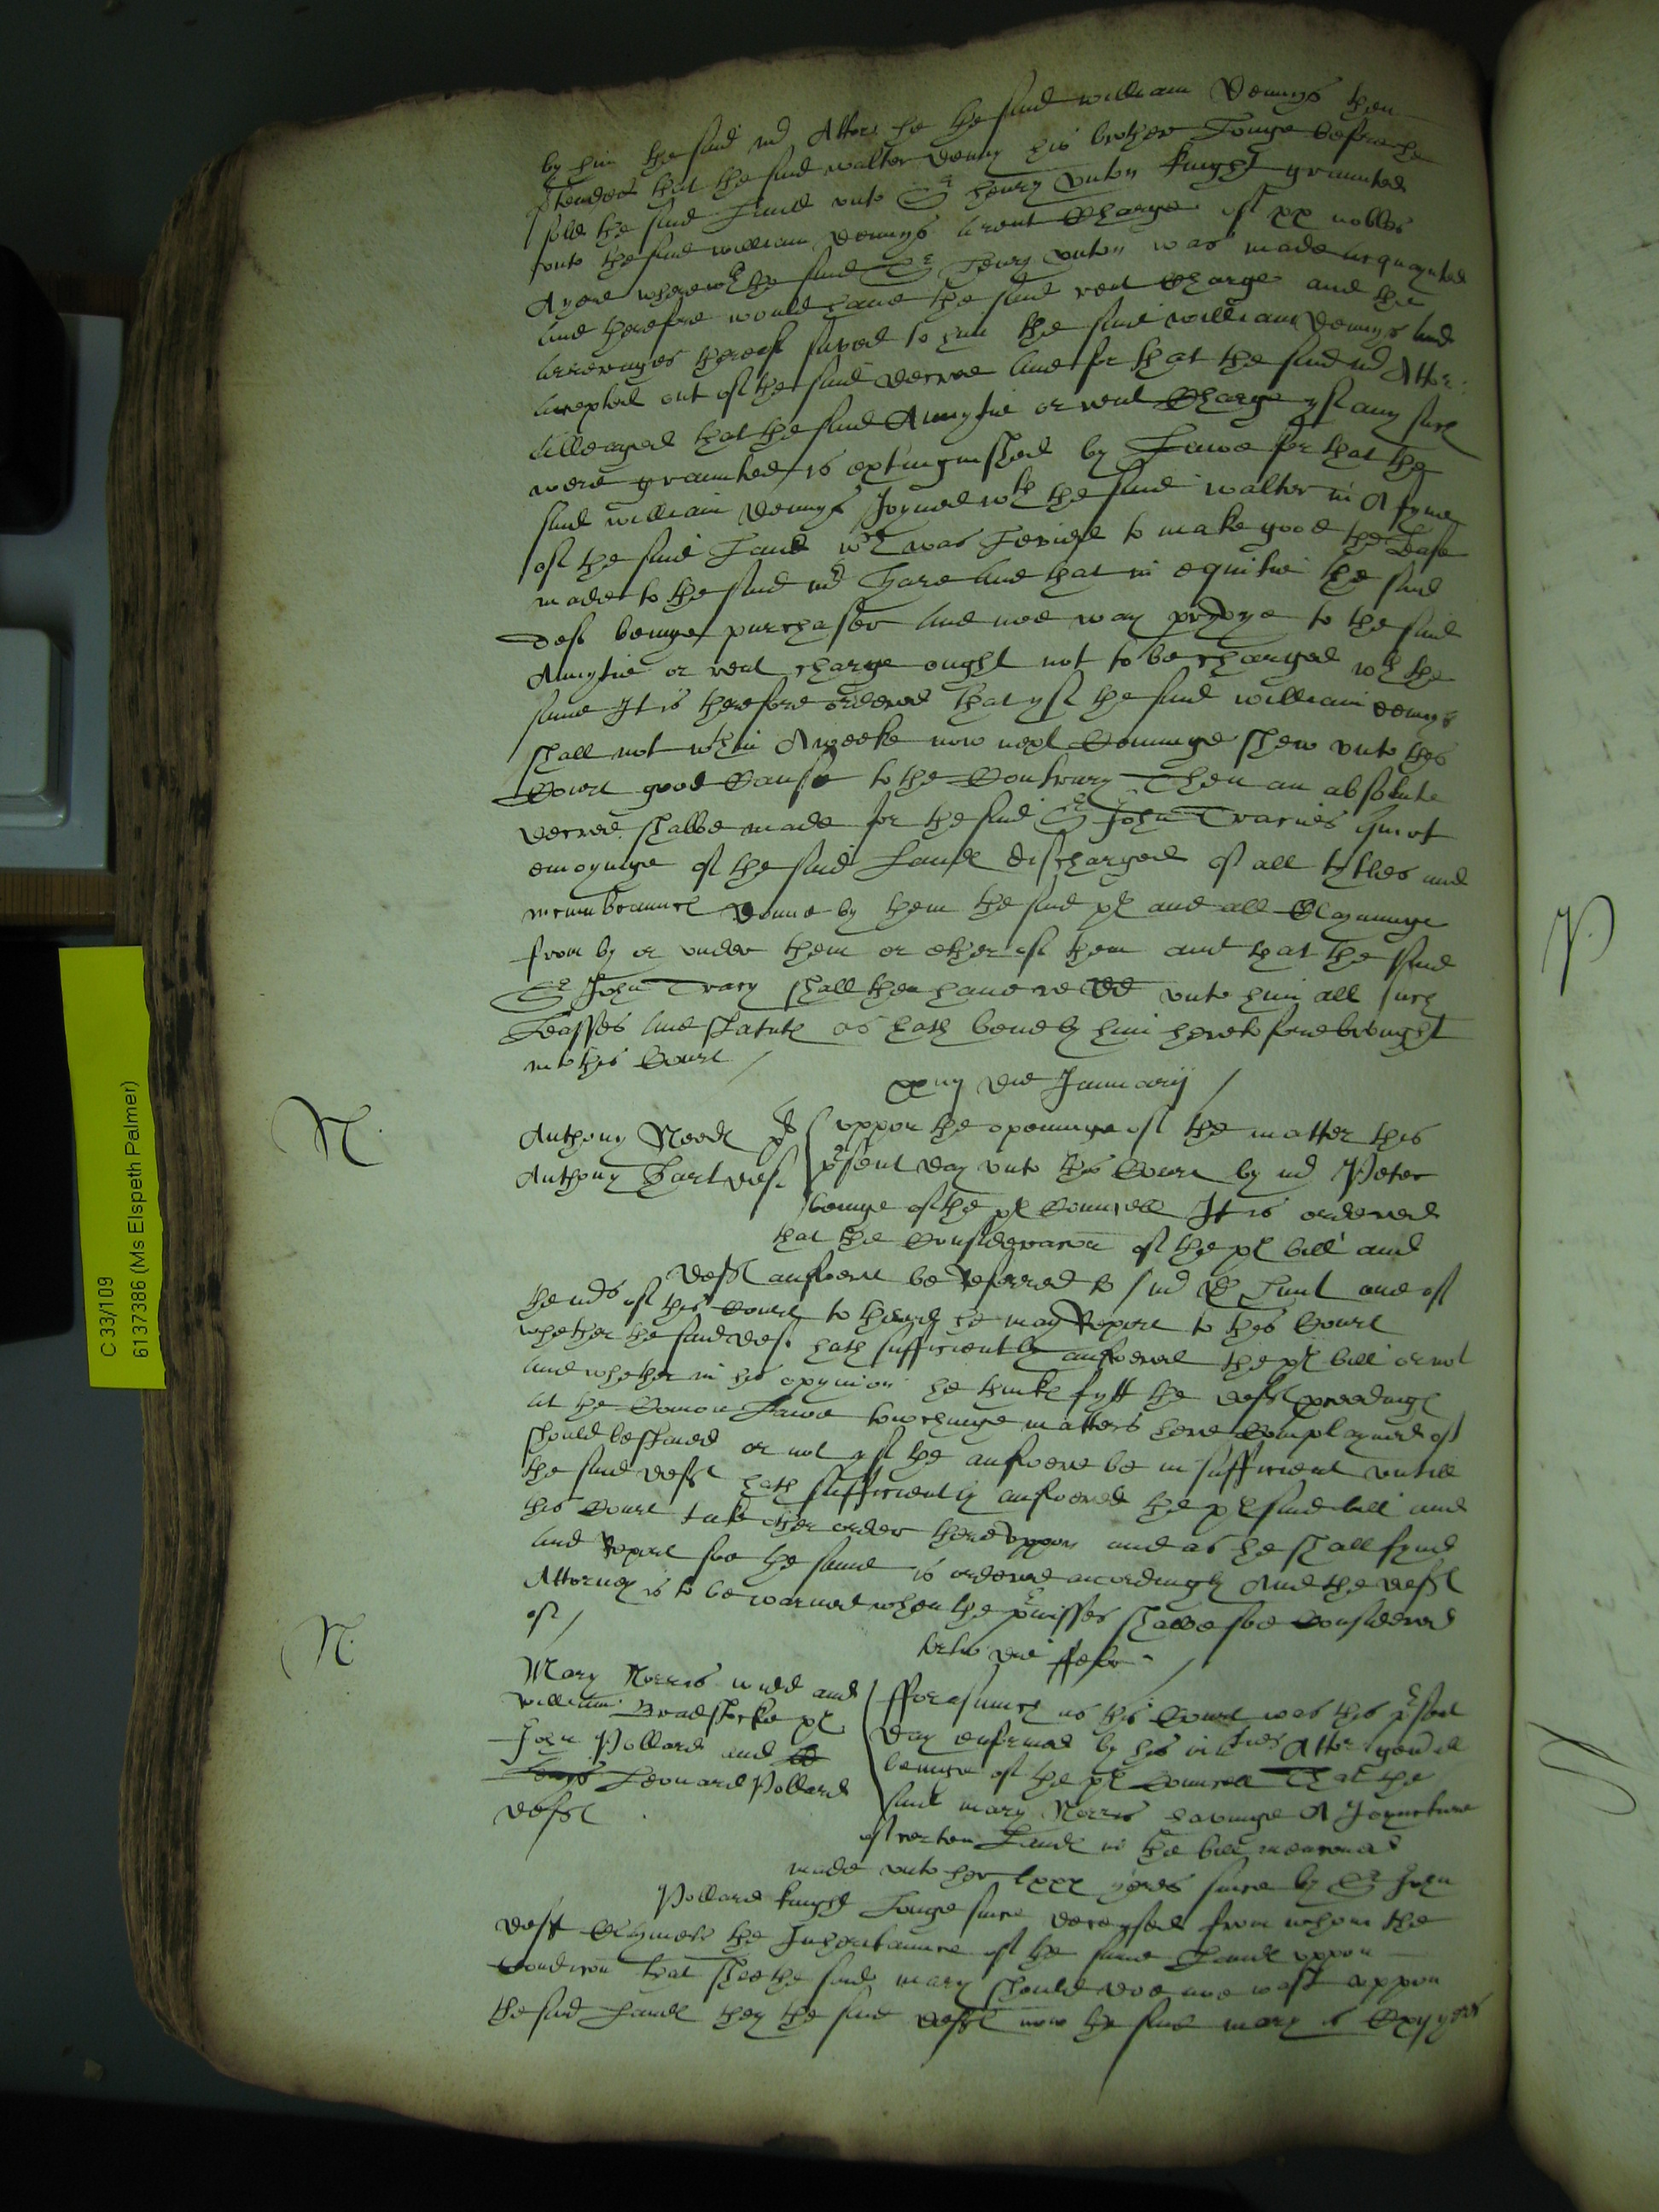 by him the said mr Attor he the said william Dennys then
that the said walter Denny his brother longe before he
sold the said Landℓ unto Sr henry vnton knight graunted
vnto the said william Dennys a rent Charge of xx nobles
A yere wherewth the said Sr henry vnton was made acquaynted
and therefore would have the said rent Charge and the
arrerages thereof saved to him the said william Dennys and
excepted out of the said decree and for that the said mr Attor
alleaged that the said Annytie or rent Charge yf any such
were graunted is extinguished by Lawe for that the
said william Dennys Joyned wth the said walter in A fyne
of the said Landℓ wch was Levied to make good the Lease
made to the said mr Hare and that in equitie the said
def beinge A purchaser and noe way pryvye to the said
Annytie or rent charge ought not to be charged wth the
same It is therefore ordered That yf the said william Dennys
shall not wthin A weeke now next Comminge shew vnto this
Court good Cause to the Contrary Then an absolute
decree shalbe made for the said Sr John Tracies quiet
enioyinge of the said Landℓ discharged of all tytles and
incumbrauncℓ donne by them the said plℓ and all Clayminge
from by or vnder them or ether of them and that the said
Sr John Tracy shall then have redd vnto him all such
Leasses and statutℓ as hath bene by him heretofore brought
into this Court /
xxiij die Januarij /
N.
Anthony Reede pl
Anthony Hart def
vppon the openinge of the matter this
psent day vnto this Court by mr Peter
beinge of the plℓ Councell It is ordered
that the Consideracon of the plℓ bill and
deftℓ answere be Referred to mr D Hunt one of
the mrs of this Court to thend he may Report to this Court
whether the said def hath sufficiently answered the plℓ bill or not
and whether in his opynion he thinkℓ fytt the deftℓ pceedingℓ
at the Comon Lawe towchinge matters here Complayned of
should be stayed or not yf the answere be insufficient vntill
the said deftℓ hath sufficiently answered the plℓ said bill and
this Court take other order therevppon and as he shall fynd
and Report soe the same is ordered accordingly And the deftℓ
Attorney is to be warned when the pmisses shalbe soe Considered
of /
N.
tertio die ffebr /
Mary Norris widd and
william Bradstocke plℓ
John Pollard and
Leonard Pollard
deftℓ
fforasmuch as this Court was this psent
day enformed by his maties Attor genall
beinge of the plℓ Councell That the
said mary Norris havinge A Joyncture
of certen Landℓ in the bill menconed
made vnto her yeres since by Sr John
Pollard knight longe since deceased from whom the
deft Claymeth the Inheritaunce of the same Landℓ vppon
Condicon that shee the said mary should doe noe wast vppon
the said Landℓ they the said deftℓ now the said mary is yeres
C 33/109
6137386 (Ms Elspeth Palmer)